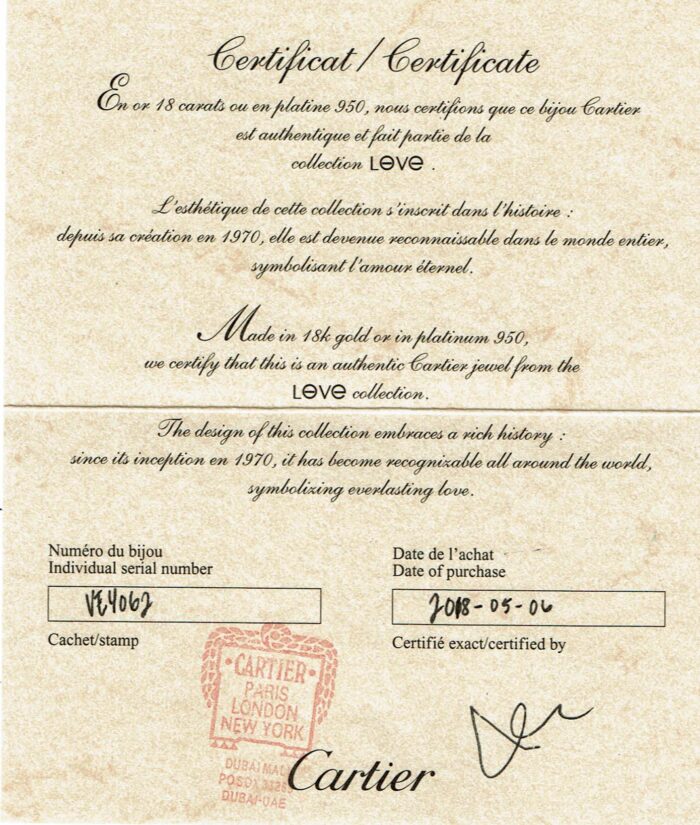 Certificat / Certificate
En or 18 carats ou en platine 950, nous certifions que ce bijou Cartier
est authentique et fait partie de la
collection LOVE .
L'esthétique de cette collection s'inscrit dans l'histoire :
depuis sa création en 1970, elle est devenue reconnaissable dans le monde entier,
symbolisant l'amour éternel.
Made in 18k gold or in platinum 950,
we certify that this is an authentic Cartier jewel from the
LOVE collection.
The design of this collection embraces a rich history :
since its inception en 1970, it has become recognizable all around the world,
symbolizing everlasting love.
Numéro du bijou
Individual serial number
VE4062
Date de l'achat
Date of purchase
2018-05-06
Cachet/stamp
Certifié exact/certified by
CARTIER
PARIS
LONDON
NEW YORK
DUBAI MALL
DUBAI-UAE
Cartier